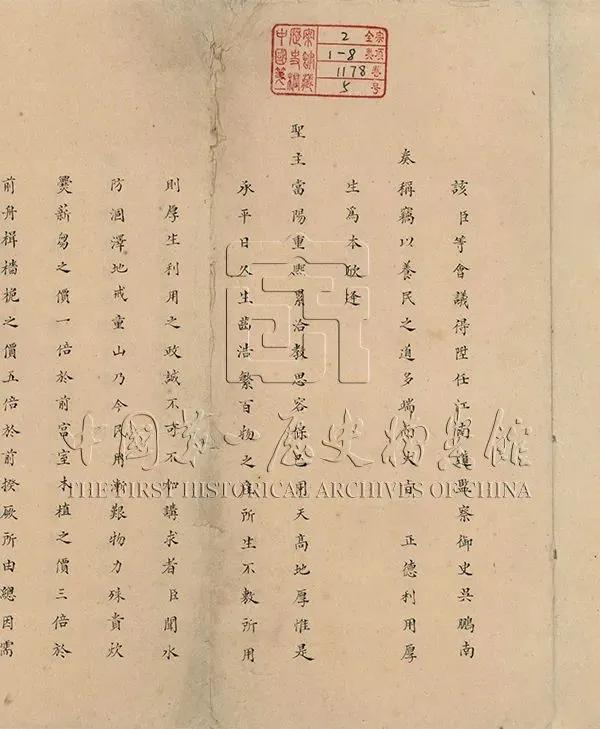 中國第一
歷史檔
案館藏
全宗 2
類項 1-8
卷 1178
号 5
該臣等會議得陞任江南道監察御史吳鵬南
奏稱竊以養民之道多端而大旨 正德利用厚
生為本欣逢
聖主當陽重熙累洽教思容保天高地厚惟是
承平日久生齒浩繁百物之產所生不敷所用
則厚生利用之政誠不可不加講求者臣聞水
防涸澤地戒童山乃今民用漸艱物力殊貴炊
爨薪芻之價一倍於前宮室木植之價三倍於
前舟楫檣桅之價五倍於前揆厥所由總因需
中國第一歷史檔案館
THE FIRST HISTORICAL ARCHIVES OF CHINA